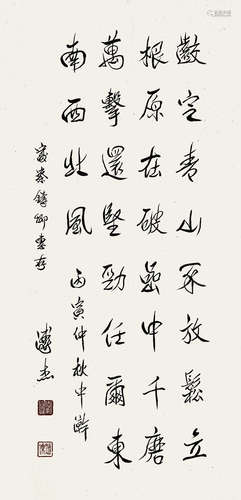 齩定青山不放鬆立
根原在破巖中千磨
萬擊還堅勁任爾東
南西北風
丙寅仲秋中澣
溥杰
鑄卿惠存